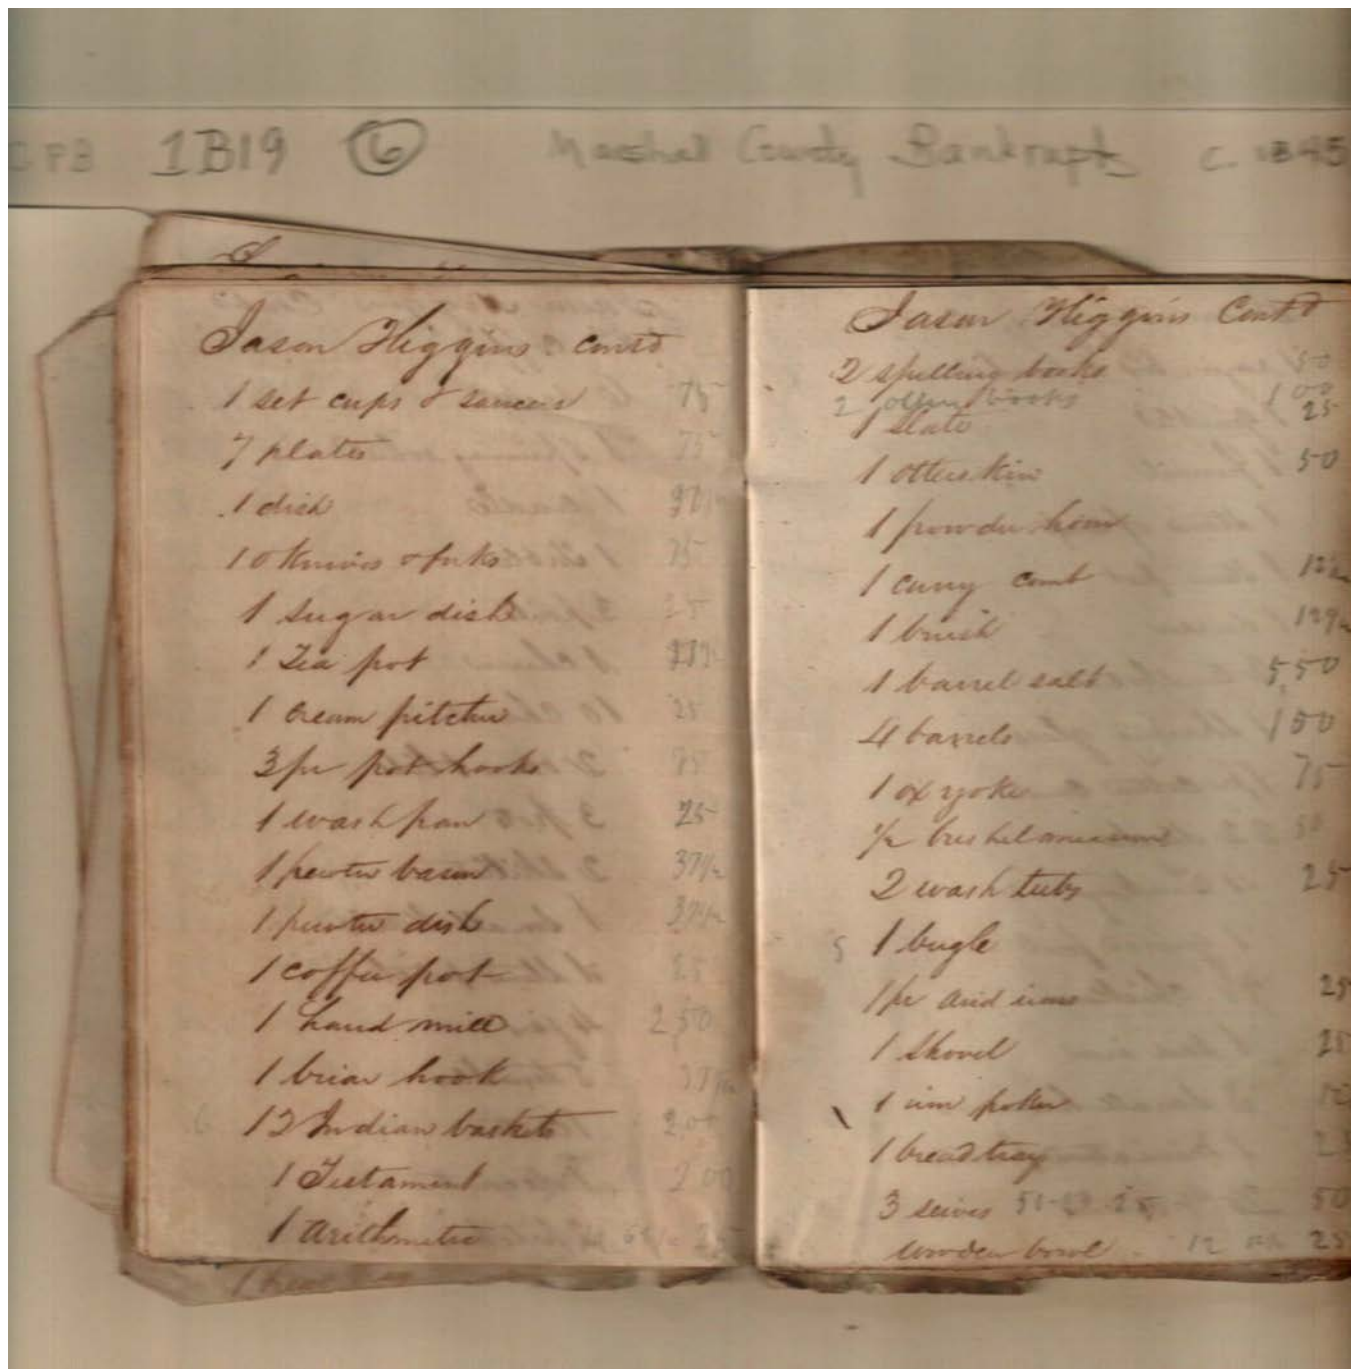 1B19 6 Marshal County Bankrupts C. 1845
Jason Higgins contd
1 set cups & saucers 75
7 plates 75
1 dish
10 Knives & forks 75
1 sugar dish 25
1 Tea pot
1 cream pitcher 25
3 pr pot hooks 75
1 wash pan 25
1 pewter basin 37 1/2
1 pewter dish 37 1/2
1 coffee pot 25
1 hand mill 2,50
1 briar hook 37 1/2
12 Indian baskets 2,00
1 Testament 2 00
1 Arithmetic 25
Jason Higgins Contd
2 spelling books 50
2 other books 1 00
1 slate 25
1 otterskin 50
1 powder horn
1 curry comb 12 1/2
1 brush 12 1/2
1 barrel salt 5,50
4 barrels 1 50
1 ox yoke 75
1/2 bushel measure 50
2 wash tubs 25
1 bugle
1 pr and irons 25
1 shovel 25
1 iron poker
1 bread tray 25
3 seives 50
wooden bowl 25